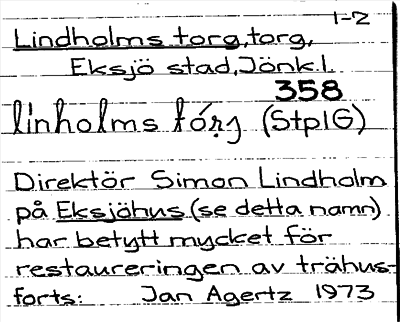 1-2
Lindholms torg, torg,
Eksjö stad, Jönk.l.
358
linholms tórj (StplG)
Direktör Simon Lindholm
på Eksjöhus (se detta namn)
har betytt mycket för
restaureringen av trähus-
forts: Jan Agertz 1973